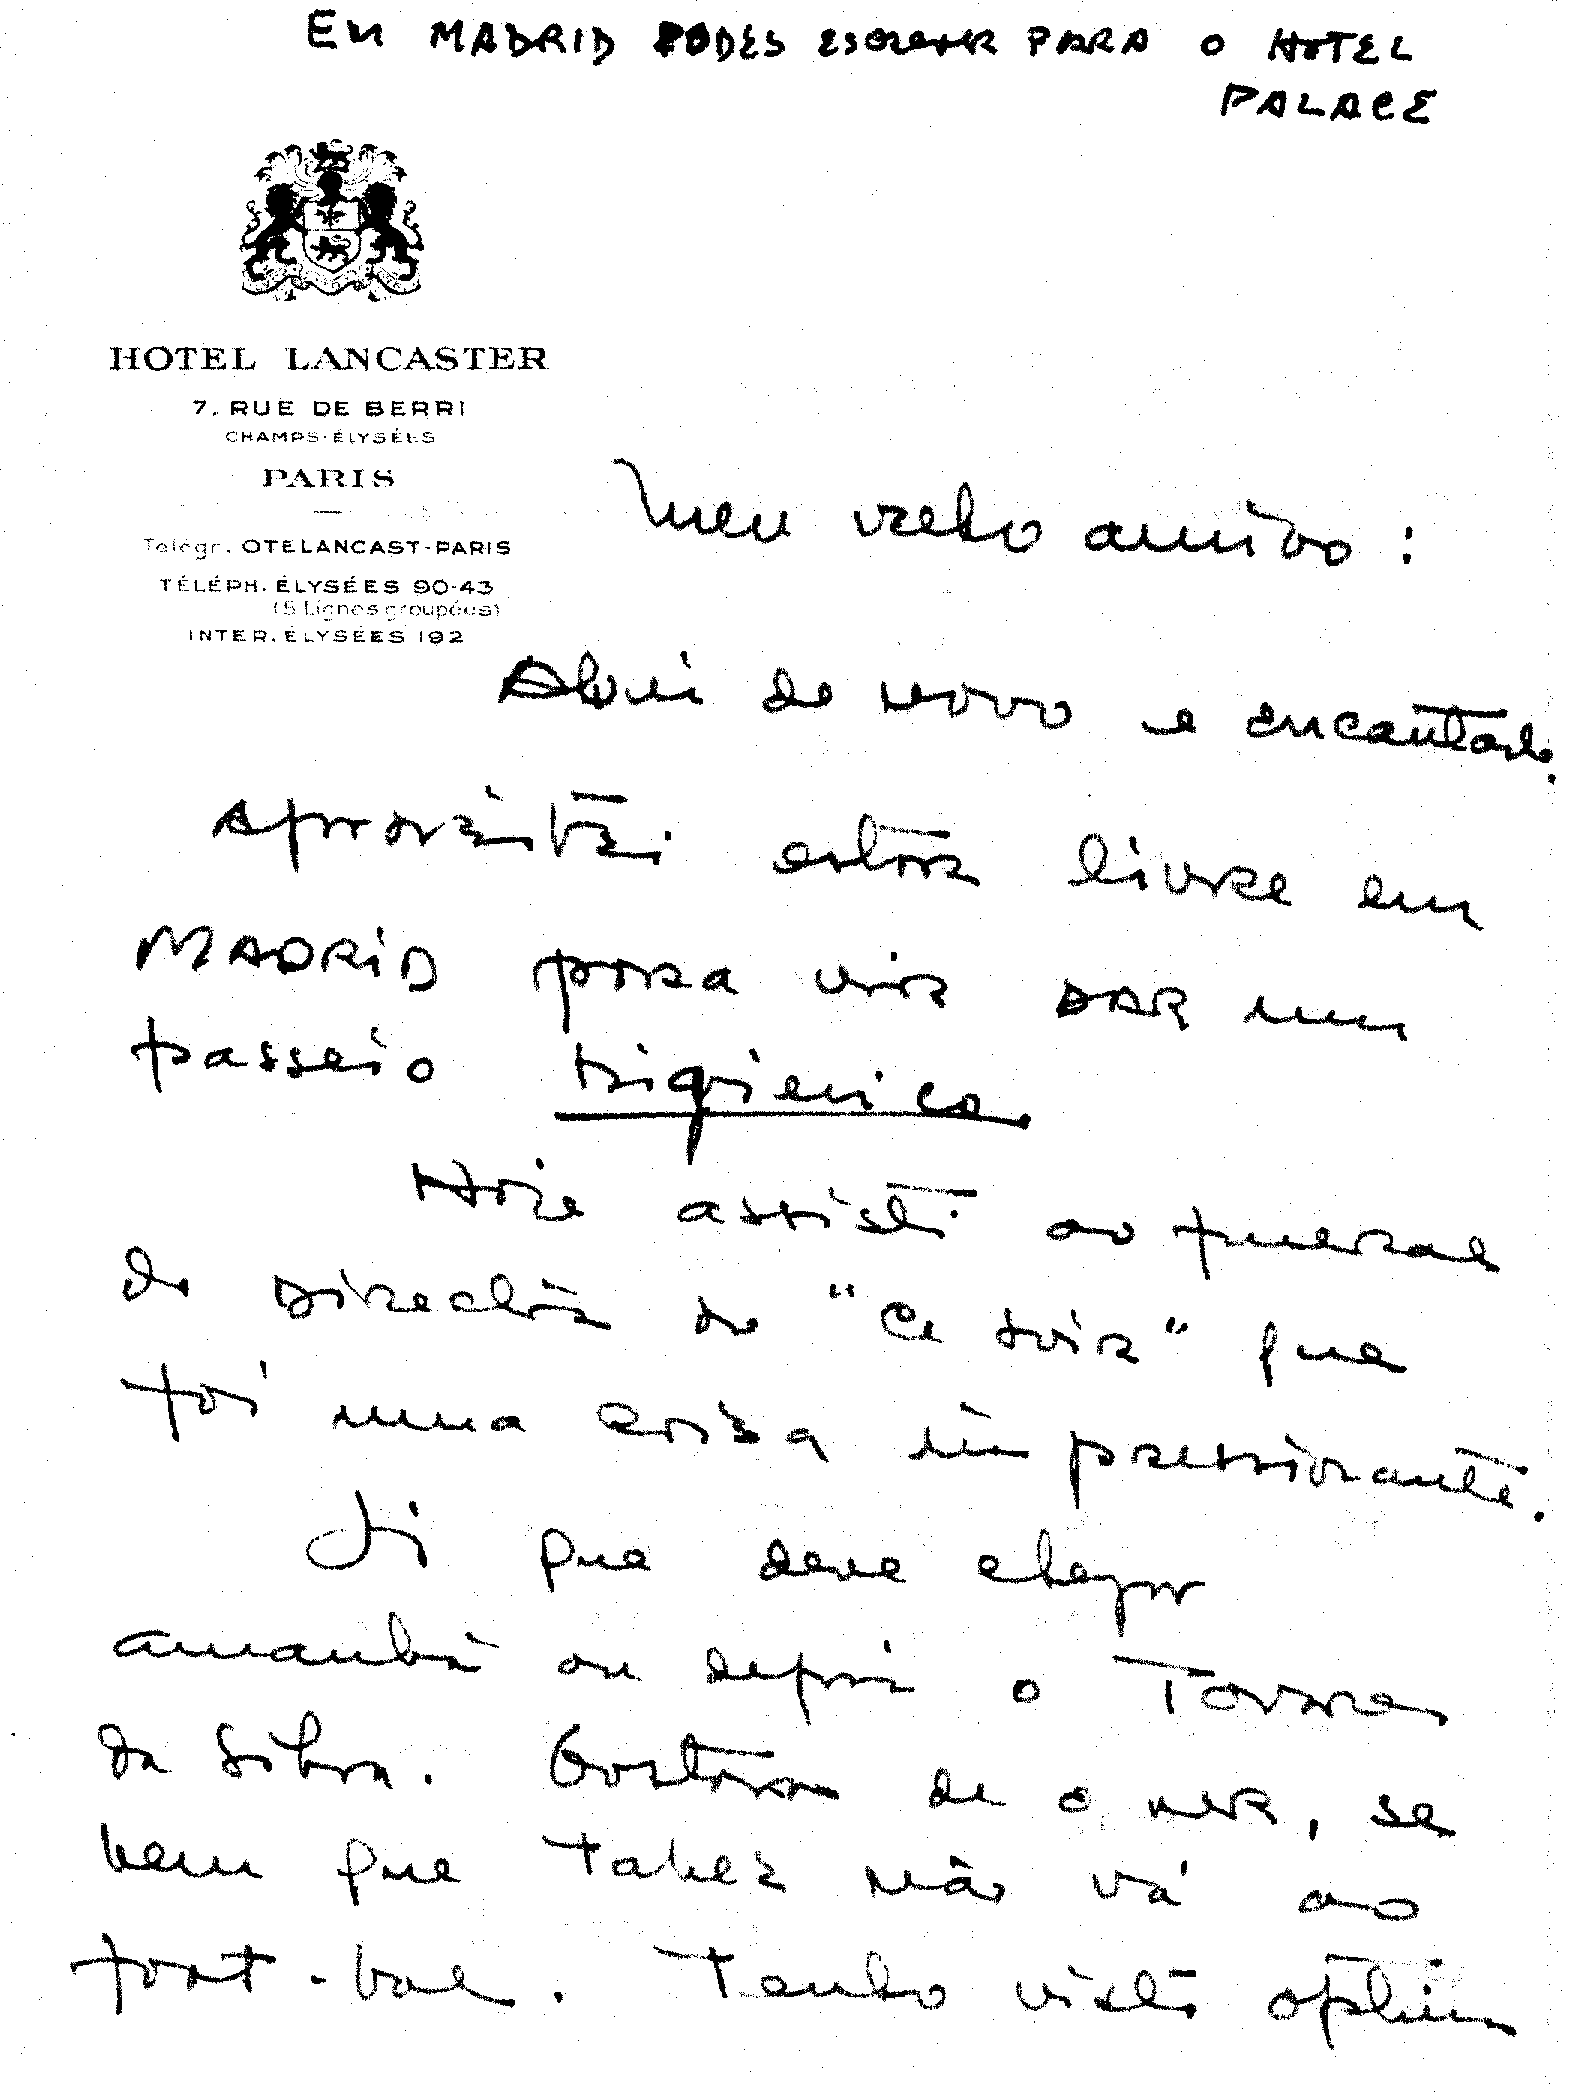 EM MADRID PODES ESCREVER PARA O HOTEL
PALACE
HOTEL LANCASTER
7, RUE DE BERRI
CHAMPS-ÉLYSÉES
PARIS
Télégr. OTELANCAST-PARIS
TÉLÉPH. ÉLYSÉES 90-43
(5 Lignes groupées)
INTER. ÉLYSÉES 192
Meu velho amigo:
Aqui de novo e encantado.
Aproveitei estar livre em
MADRID para vir DAR um
passeio higienico
Hoje assisti ao funeral
do Director do "Ce soir" que
foi uma coisa impressionante.
Si que deve chegar
amanhã ou depois o Tavares
da Silva. Gostava de o ver, se
bem que talvez não vá ao
foot-ball. Tenho visto optimo